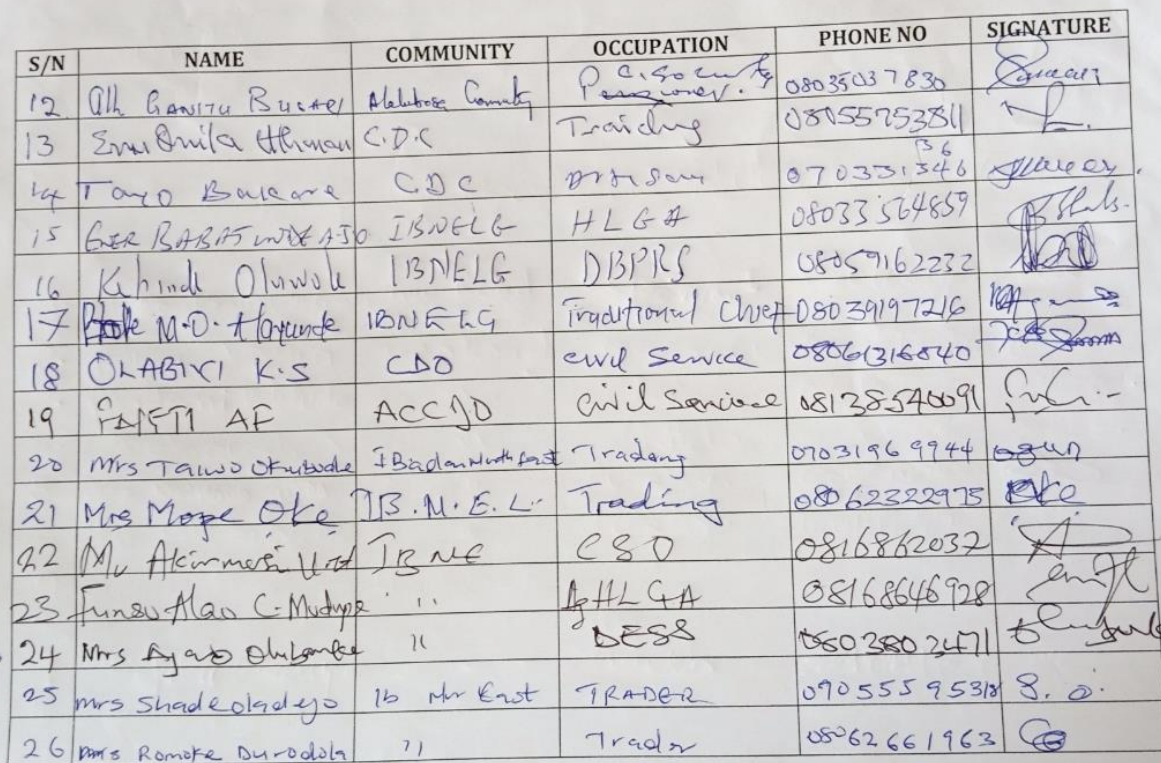 S/N NAME COMMUNITY OCCUPATION PHONE NO SIGNATURE
12 Alh GANIYU Community P.C. Society Pensioner. 08035037830
13 C.D.C Traiding 08055753811
14 Tayo Bakare CDC Artisan 070331346 36
15 BABATUNDE AJO IBNELG HLGA 08033564859
16 Kehinde Oluwole IBNELG DBPRS 08059162232
17 M.O. IBNELG Traditional Chief 08039197216
18 OLABIYI K.S CDO civil Service 08061316840
19 AF ACCJD Civil Service 08138540091
20 Mrs Taiwo IBadan North East Trading 07031969944
21 Mrs Mope Oke IB.N.E.L. Trading 08062322975 Oke
22 IBNE CSO 0816862032
23 Funso Alao C. Mudupe " Ag HLGA 08168646928
24 Mrs " DESS 0803802471
25 mrs Shade oladejo Ib Nor East TRADER 0905559531 S.O.
26 mrs Romoke Durodola " Trader 08062661963